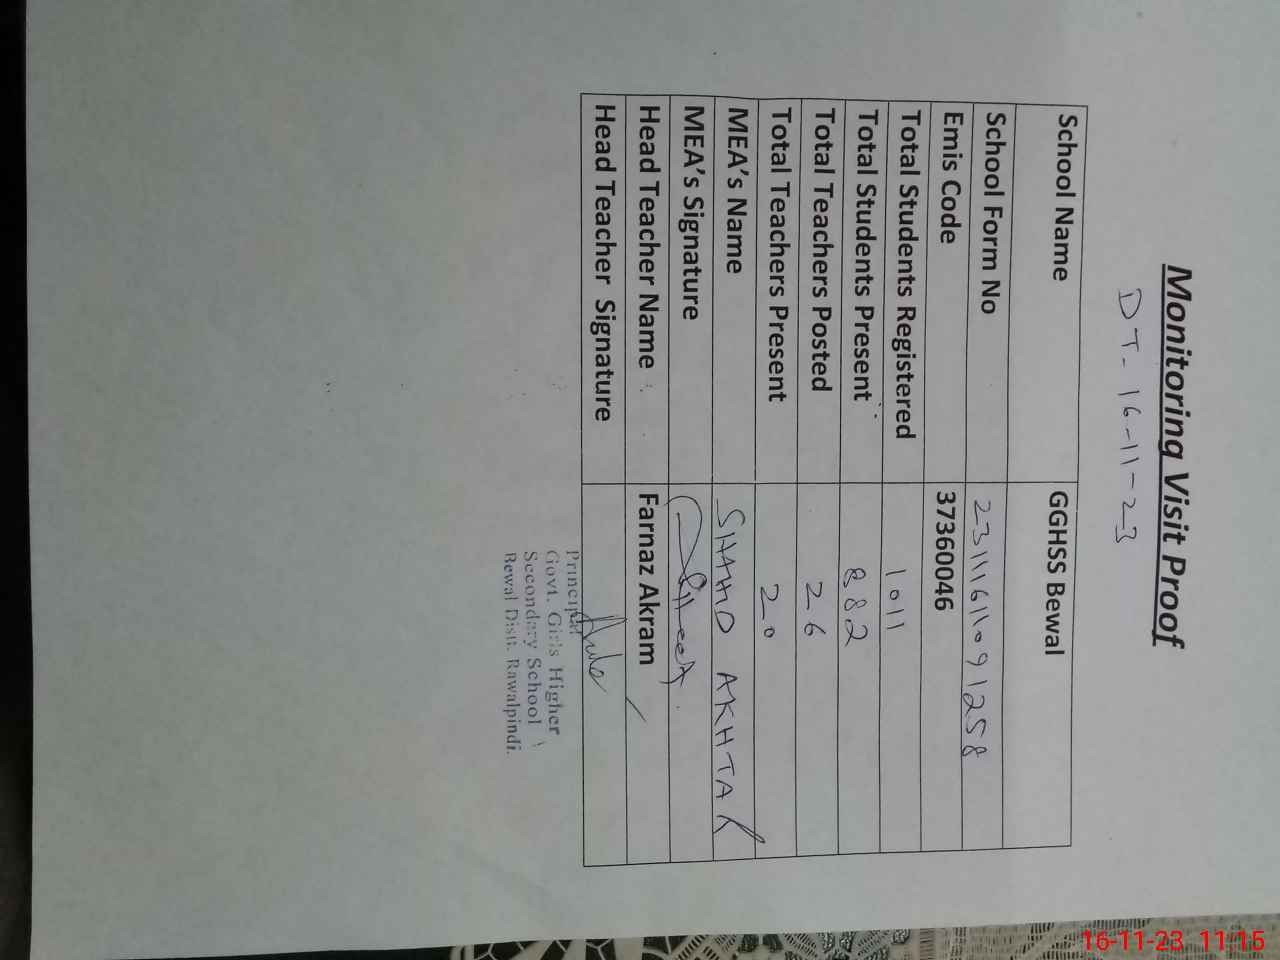 Monitoring Visit Proof
DT- 16-11-23
School Name GGHSS Bewal
School Form No 23111611091258
Emis Code 37360046
Total Students Registered 1011
Total Students Present 882
Total Teachers Posted 26
Total Teachers Present 20
MEA's Name SHAHID AKHTAR
MEA's Signature
Head Teacher Name Farnaz Akram
Head Teacher Signature
Principal
Govt. Girls Higher
Secondary School
Bewal Distt. Rawalpindi.
16-11-23 11:15